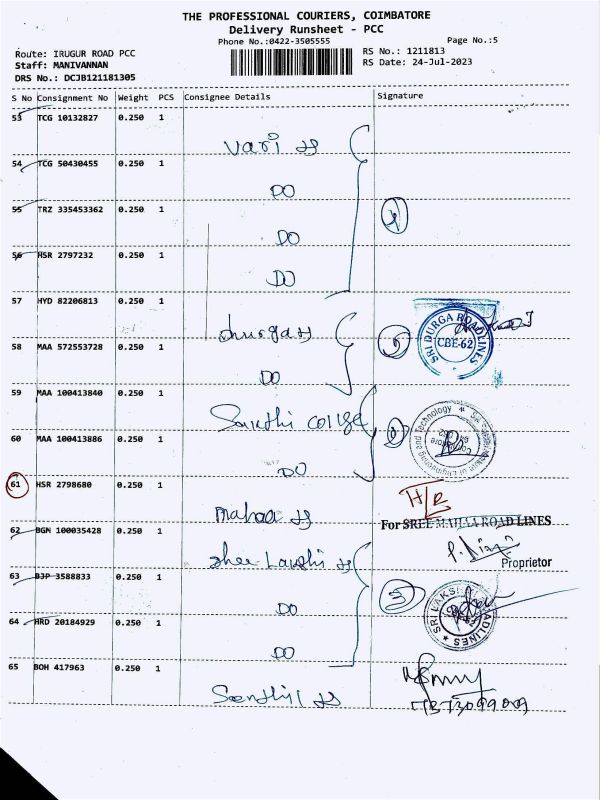 THE PROFESSIONAL COURIERS, COIMBATORE
Delivery Runsheet - PCC
Phone No.:0422-3505555
Page No.:5
Route: IRUGUR ROAD PCC
RS No.: 1211813
Staff: MANIVANNAN
RS Date: 24-Jul-2023
DRS No.: DCJB121181305
S No Consignment No Weight PCS Consignee Details Signature
53 TCG 10132827 0.250 1
Vari
54 TCG 50430455 0.250 1
DO
55 TRZ 335453362 0.250 1
DO
56 HSR 2797232 0.250 1
DO
57 HYD 82206813 0.250 1
SRI DURGA ROADLINES
CBE-62
58 MAA 572553728 0.250 1
DO
59 MAA 100413840 0.250 1
60 MAA 100413886 0.250 1
DO
61 HSR 2798680 0.250 1
Mahaa
For SREE MAHAA ROAD LINES
62 BGN 100035428 0.250 1
Proprietor
63 BJP 3588833 0.250 1
DO
64 HRD 20184929 0.250 1
DO
65 BOM 417963 0.250 1